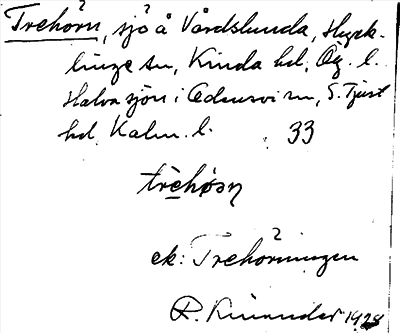 Trehörn, sjö å Vårdslunda, Hyck-
linge sn, Kinda hd, Ög. l.
Halva sjön i Odensvi sn, S. Tjust
hd Kalm. l. 33
trèhøsn
ek: Trehörningen
R. Kinander 1928